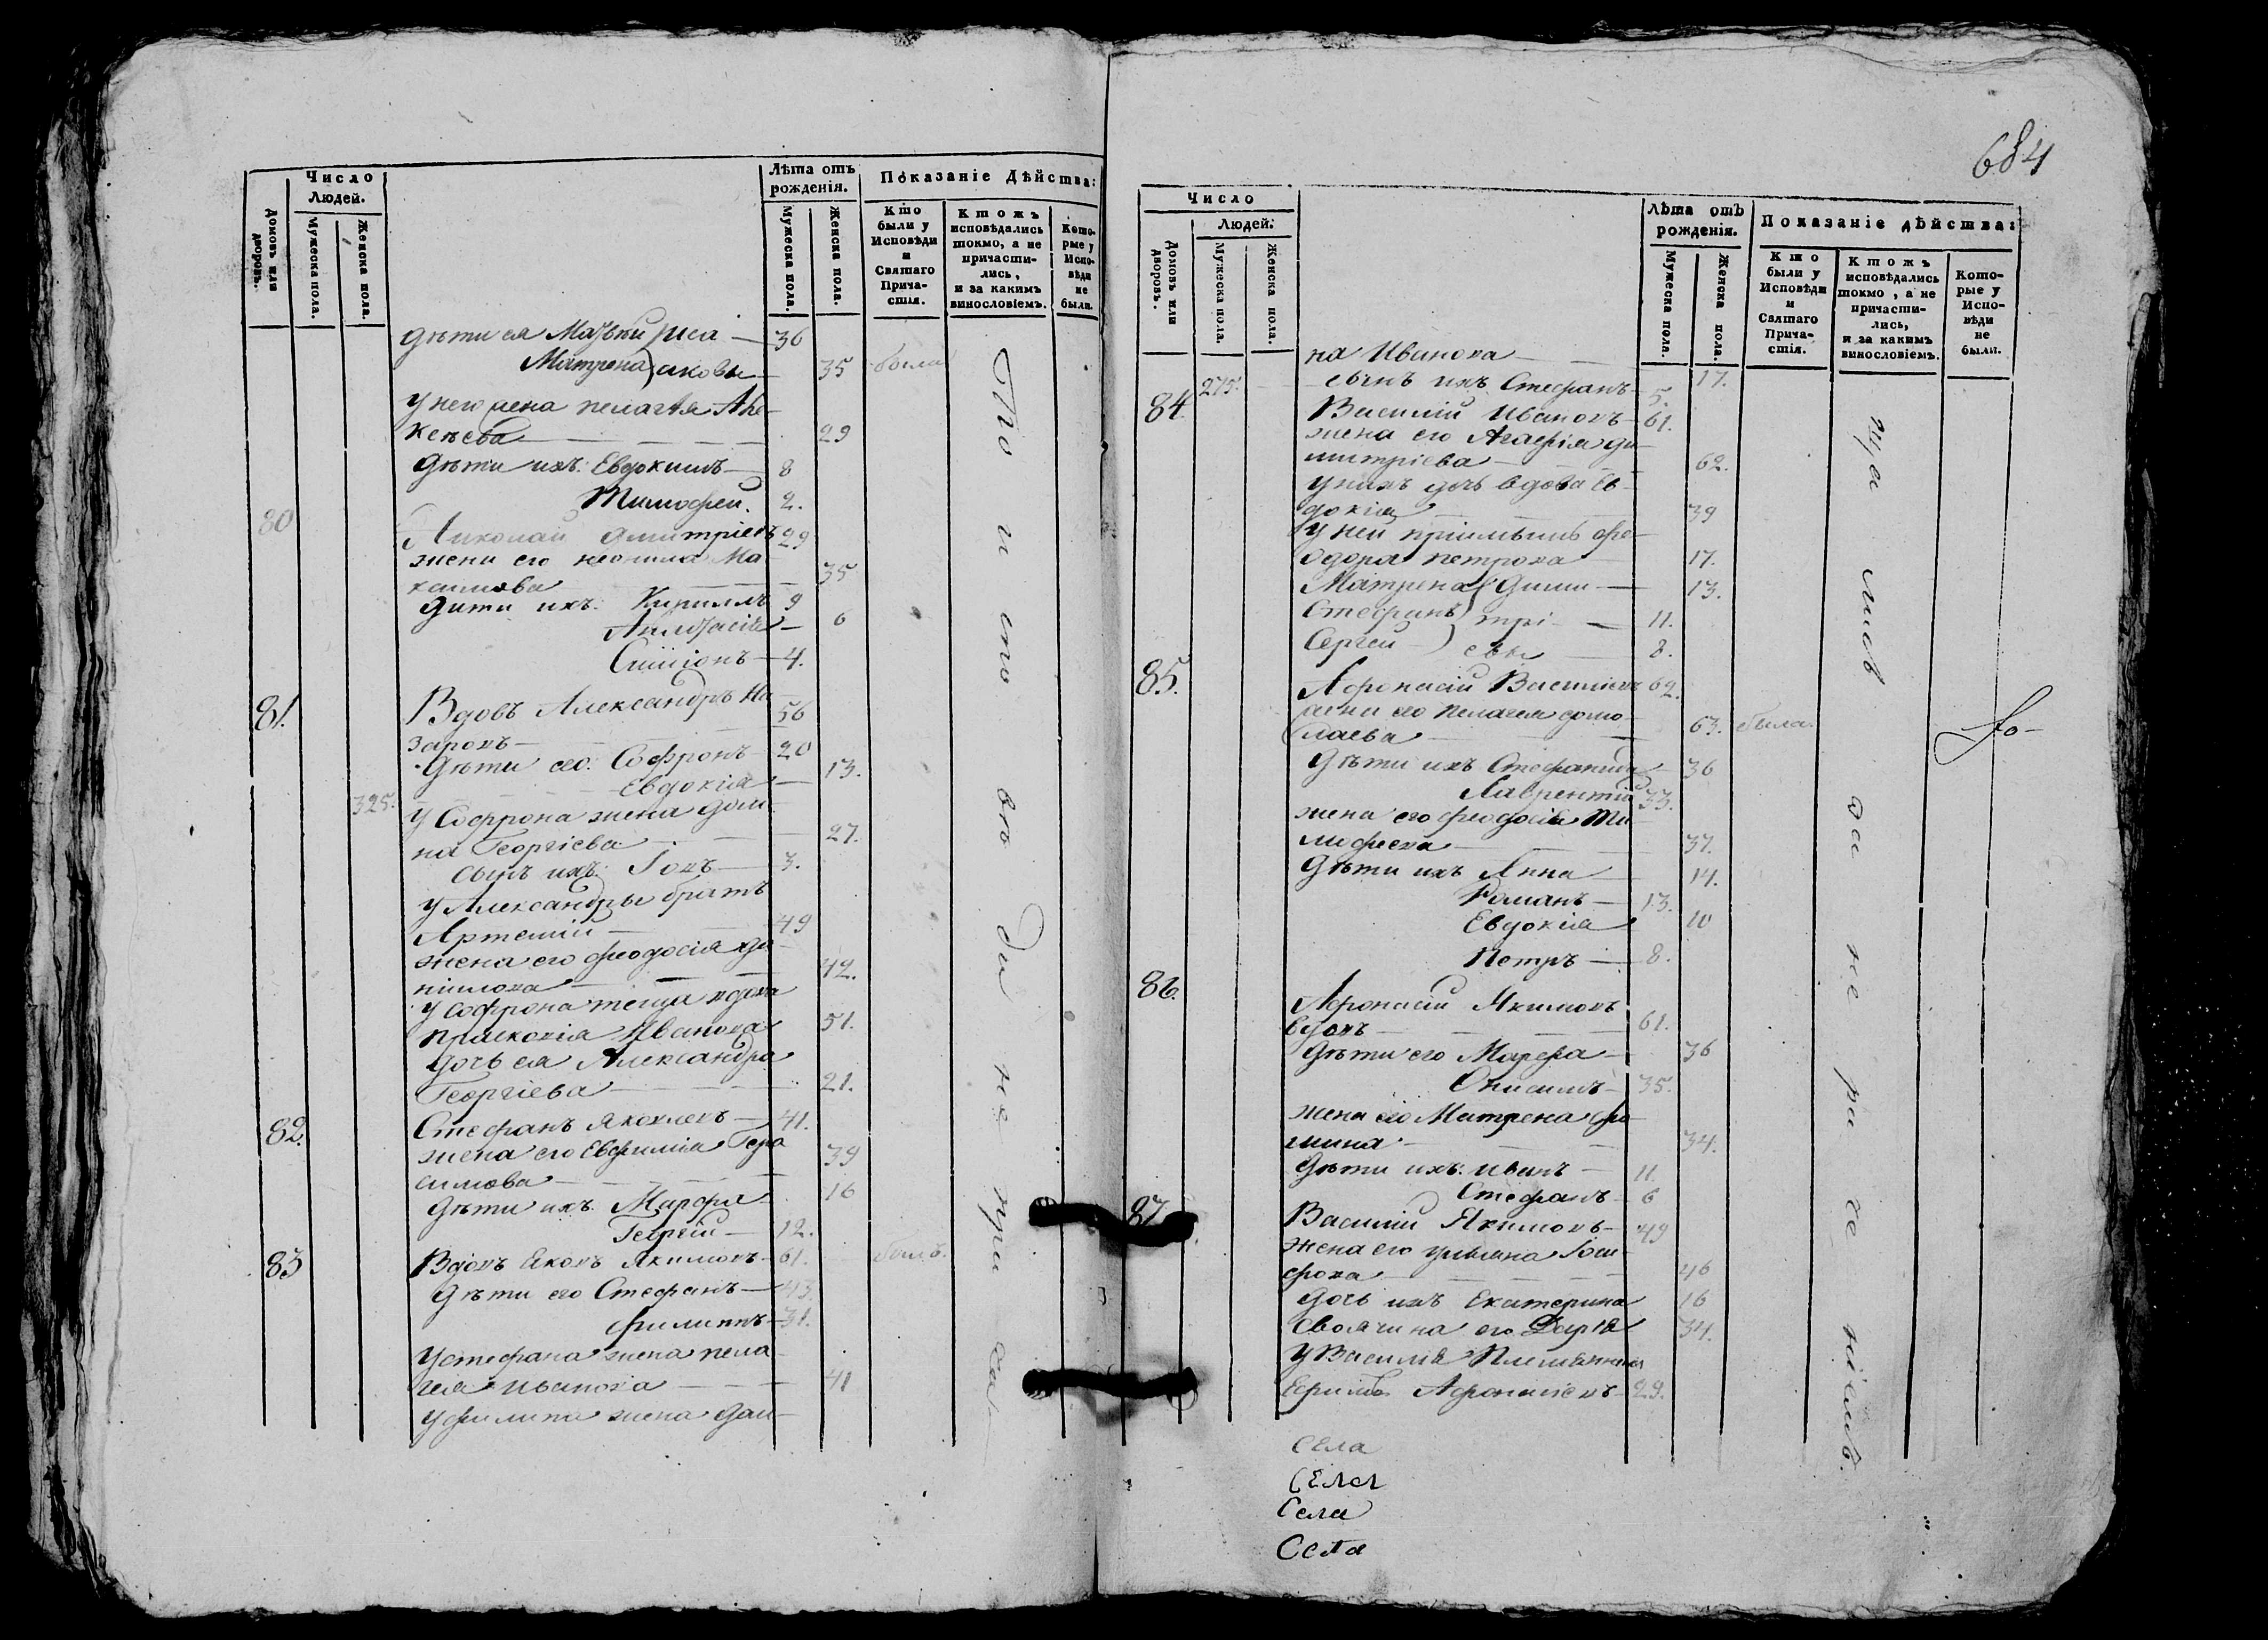 684
Число
Людей.
Домовъ или дворовъ.
Мужеска пола.
Женска пола.
Лѣта отъ рожденія.
Мужеска пола.
Женска пола.
Показаніе Дѣйства:
Кто были у Исповѣди и Святаго Причастія.
Ктожъ исповѣдались токмо, а не причастились, и за какимъ винословіемъ.
Которые у Исповѣди не были.
дѣти ея Матѳѣй Иса 36
Матрена аковы 35 была
у него жена пелагѣя Але
ксѣева 29
дѣти ихъ: Евдокимъ 8
Тимофей. 2.
80 Николай дмитріевъ 29
жена его неонила Ма
ксимова 35
дѣти ихъ: Кириллъ 9
Анастасія 6
Симіонъ 4.
81. Вдовъ Александръ На
заровъ 56
дѣти его: Софронъ 20
Евдокія 13.
325. у Софрона жена дом
на Георгіева 27.
сынъ ихъ: Іовъ 3.
у Александры братъ
Артемій 49
жена его феодосія да
нилова 42.
у Софрона теща вдова
прасковія Иванова 51.
дочь ея Александра
Георгіева 21.
82. Стефанъ яковлевъ 41.
жена его Евфимія Гера
симова 39
дѣти ихъ: Марфа 16
Георгій 12.
83 Вдовъ Яковъ Якимовъ 61. былъ.
дѣти его Стефанъ 43
филиппъ 31.
у стефана жена пела
гея Иванова 41
у филипа жена дом
Число
Людей.
Домовъ или дворовъ.
Мужеска пола.
Женска пола.
Лѣта отъ рожденія.
Мужеска пола.
Женска пола.
Показаніе дѣйства:
Кто были у Исповѣди и Святаго Причастія.
Ктожъ исповѣдались токмо, а не причастились, и за какимъ винословіемъ.
Которые у Исповѣди не были.
на Иванова 17.
275. сынъ ихъ Стефанъ 5.
84. Василій Ивановъ 61.
жена его Агафія ди
митріева 62.
у нихъ дочь вдова Ев
докія 39
у ней пріимышъ фе
одора петрова 17.
Матрена Дими 13.
Стефанъ трі 11.
Сергей евы 8.
85. Афонасій Васильевъ 62.
жена его Пелагея ермо
лаева 63. была.
дѣти ихъ Стефанида 36
Лаврентій 33.
жена его феодосія Ти
мофеева 37.
дѣти ихъ Анна 14.
Романъ 13.
Евдокія 10
Петръ 8.
86. Афонасій Якимовъ
вдовъ 61.
дѣти его Марфа 36
Онисимъ 35.
жена его Матрена фо
мина 34.
дѣти ихъ: Иванъ 11.
Стефанъ 6
87. Василій Якимовъ 49
жена его ульяна Іоси
фова 46
дочь ихъ Екатерина 16
Своячина его Дарія 34.
у Василія Племянникъ
Ефимъ Афонасіевъ 29.
Села
Села
Села
Села